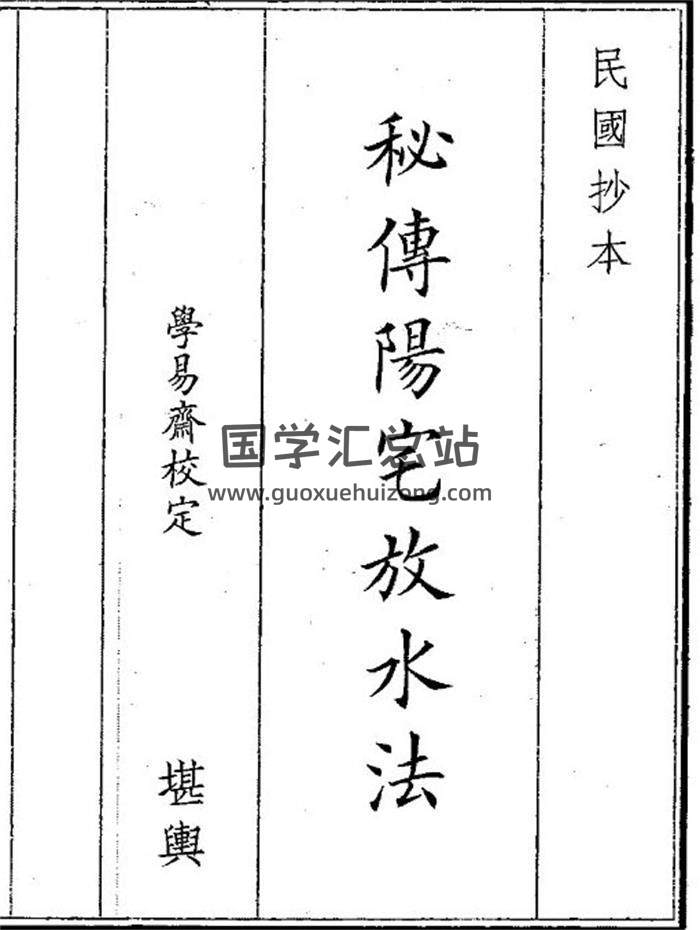 民國抄本
秘傳陽宅放水法
學易齋校定
堪輿
国学汇总站
www.guoxuehuizong.com